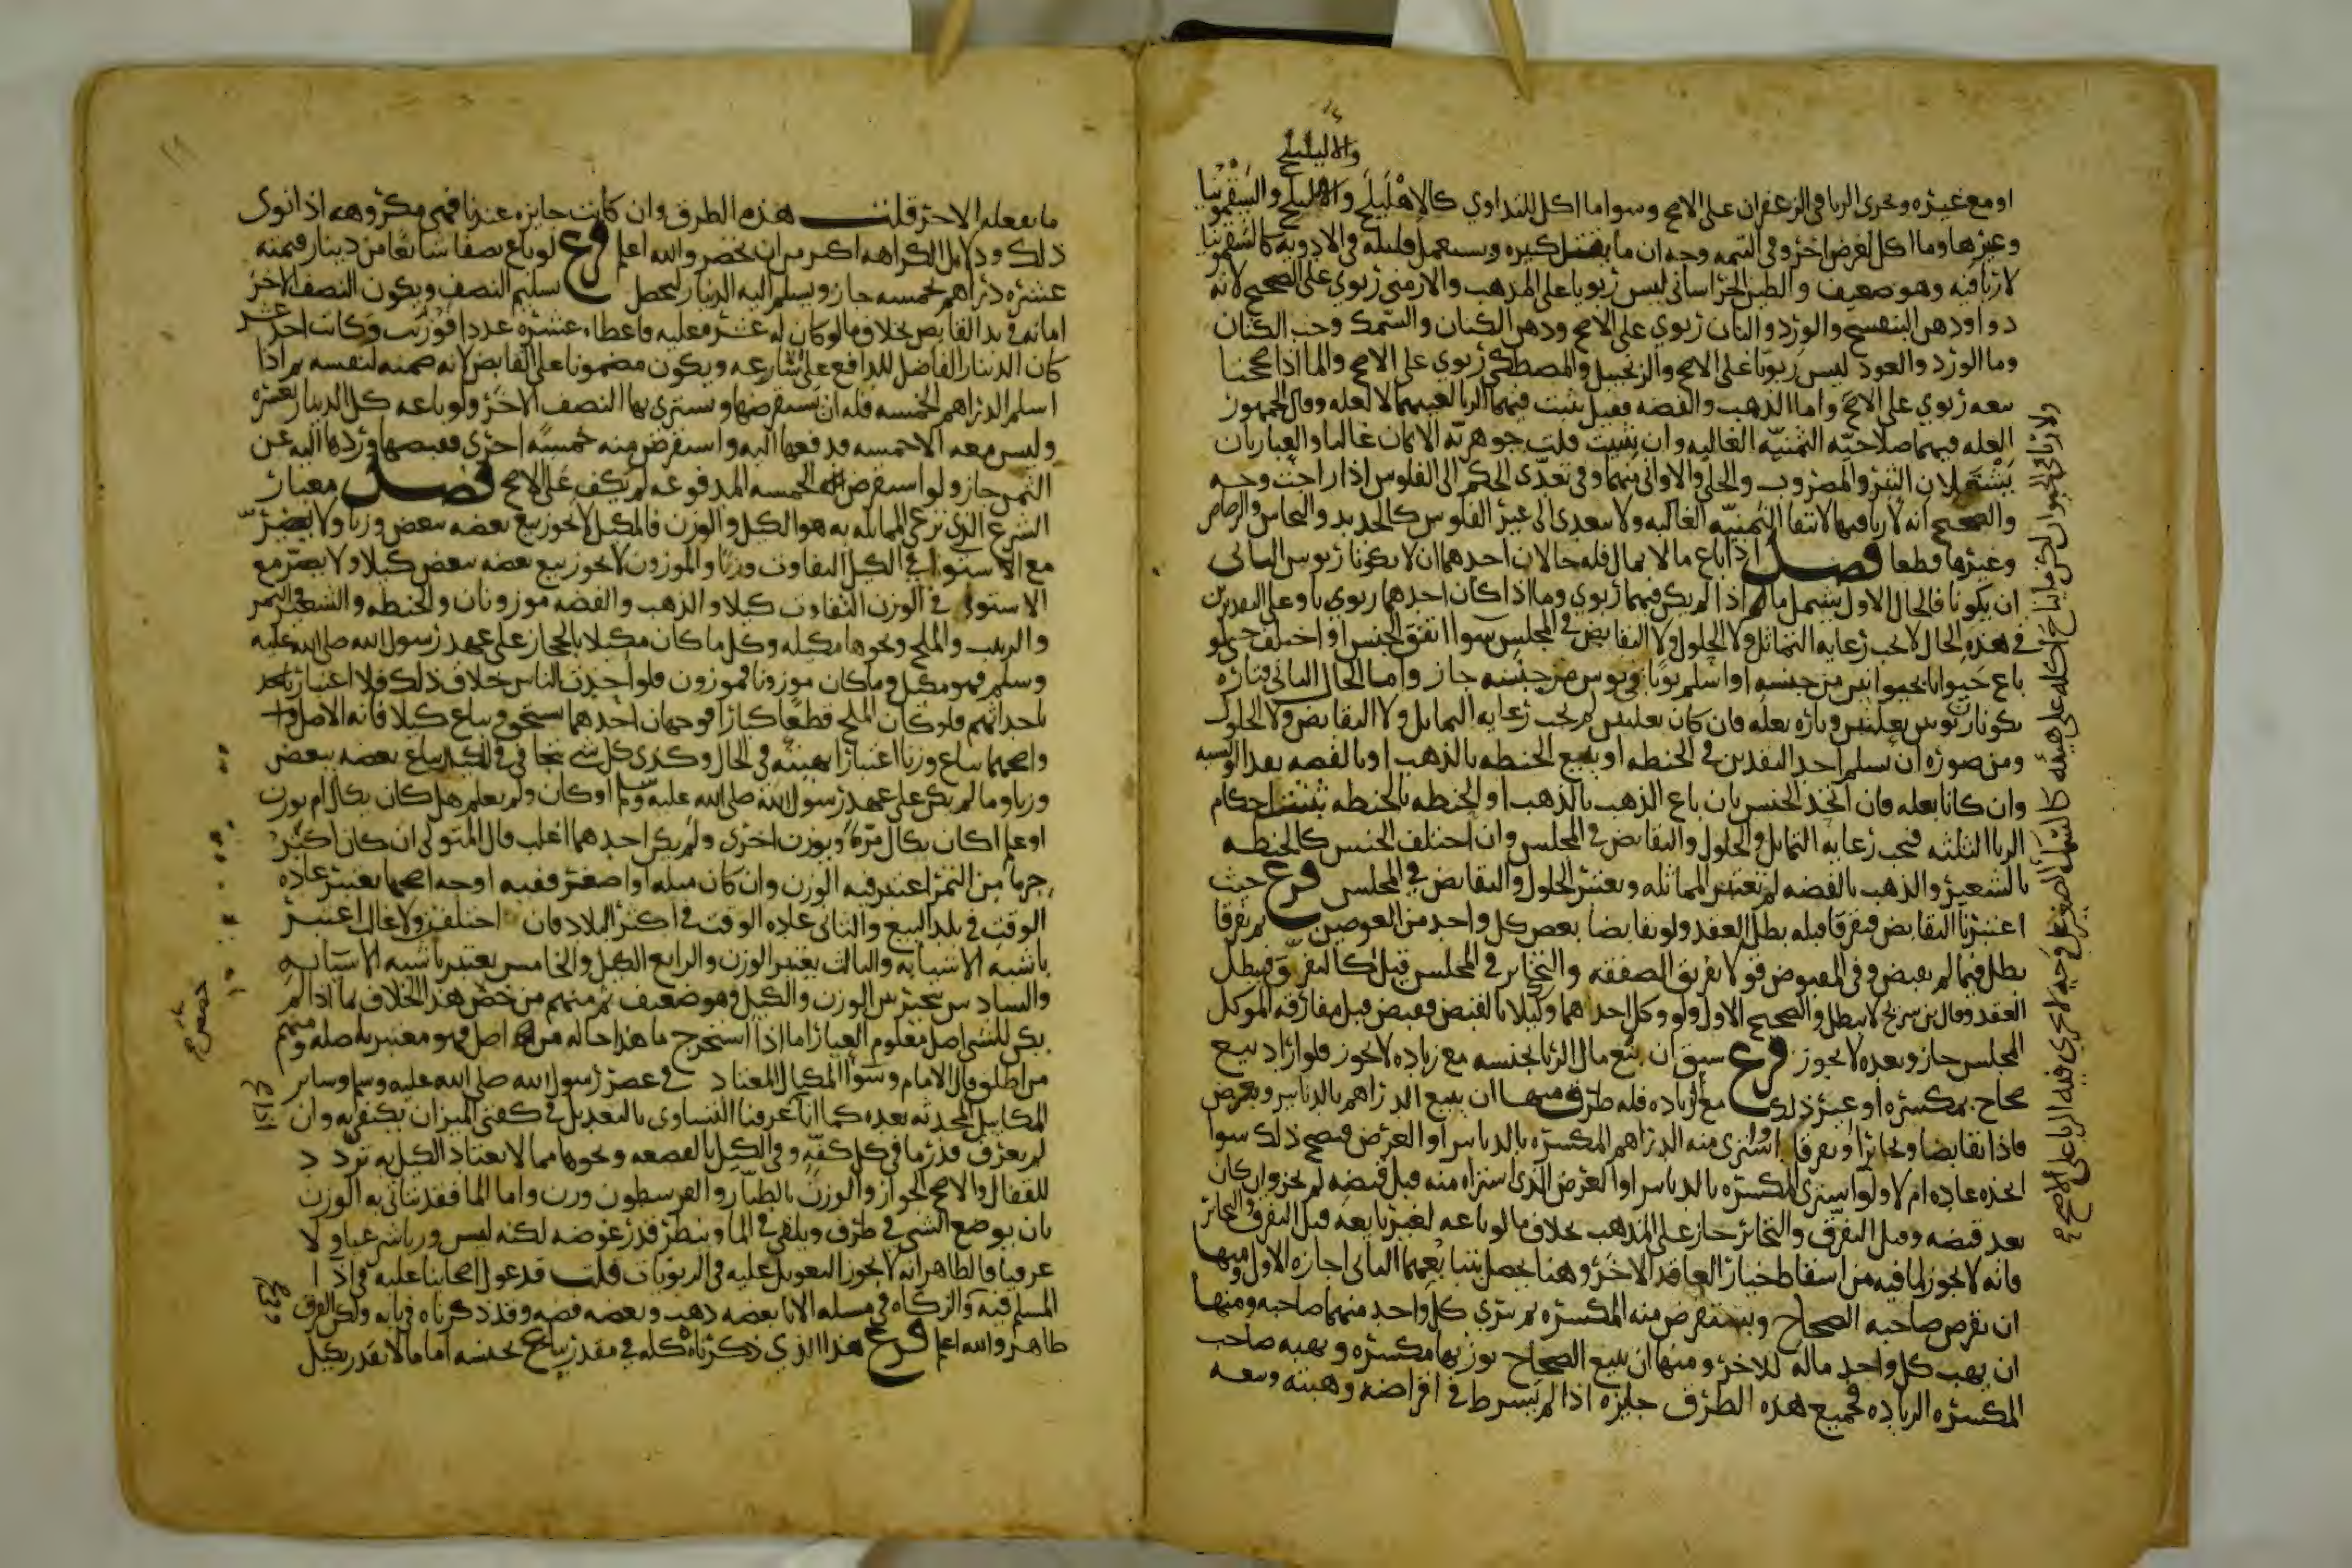 والابليلج
او مع غيره ويجري الربا في الزعفران على الاصح وسوا ما اكل للتداوي كالاهليلج والسقمونيا
وغيرها وما اكل لغرض اخر وفي التتمه وجه ان ما يقتل كثيره ويستعمل قليله في الادويه كالسقمونيا
لا ربا فيه وهو ضعيف والطين الخراساني ليس ربويا على المذهب والارمني ربوي على الصحيح لانه
دوا ودهن البنفسج والورد والبان ربوي على الاصح ودهن الكتان والسمك وحب الكتان
وما الورد والعود ليس ربويا على الاصح والزنجبيل والمصطكى ربوي على الاصح والما اذا صححنا
بيعه ربوي على الاصح واما الذهب والفضه فقيل يثبت فيهما الربا لعينهما لا لعله وقال الجمهور
العله فيهما صلاحيه الثمنيه الغالبه وان شيت قلت جوهريه الاثمان غالبا والعبارتان
يشملان التبر والمضروب والحلي والاواني منهما وفي تعدي الحكم الى الفلوس اذا راجت وجه
والصحيح انه لا ربا فيها لانتفا الثمنيه الغالبه ولا يتعدى الى غير الفلوس كالحديد والنحاس والرصاص
وغيرها قطعا فصل اذا باع مالا بمال فله حالان احدهما ان لا يكونا ربويين الثاني
ان يكونا فالحال الاول يشمل ما اذا لم يكن فيهما ربوي وما اذا كان احدهما ربويا وعلى التقديرين
في هذه الحال لا تجب رعايه التماثل ولا الحلول ولا التقابض في المجلس سوا اتفق الجنس او اختلف حتى لو
باع حيوانا بحيوانين من جنسه او اسلم ثوبا في ثوبين من جنسه جاز واما الحال الثاني فتاره
يكونا ربويين بعلتين وتاره بعله فان كان بعلتين لم تجب رعايه التماثل ولا التقابض ولا الحلول
ومن صوره ان يسلم احد النقدين في الحنطه او يبيع الحنطه بالذهب او بالفضه نقدا او نسيه
وان كانا بعله فان اتحد الجنس بان باع الذهب بالذهب او الحنطه بالحنطه ثبتت احكام
الربا الثلثه فتجب رعايه التماثل والحلول والتقابض في المجلس وان اختلف الجنس كالحنطه
بالشعير والذهب بالفضه لم تعتبر المماثله ويعتبر الحلول والتقابض في المجلس فرع حيث
اعتبرنا التقابض فتفرقا قبله بطل العقد ولو تقابضا بعض كل واحد من العوضين ثم تفرقا
بطل فيما لم يقبض وفي المقبوض قولا تفريق الصفقه والتخاير في المجلس قبل كالتفرق فيبطل
العقد وقال بن سريج لا يبطل والصحيح الاول ولو وكل احدهما وكيلا بالقبض فقبض قبل مفارقه الموكل
المجلس جاز وبعده لا يجوز فرع سبق ان بيع مال الربا بجنسه مع زياده لا يجوز فلو اراد بيع
صحاح بمكسره او غير ذلك مع الزياده فله طرق منها ان يبيع الدراهم بالدنانير ويعرض
فاذا تقابضا وتخايرا او تفرقا اشترى منه الدراهم المكسره بالدنانير او العرض فيصح ذلك سوا
اتخذه عاده ام لا ولو اشترى المكسره بالدنانير او العرض الذي اشتراه منه قبل قبضه لم يجز وان كان
بعد قبضه وقبل التفرق والتخاير جاز على المذهب بخلاف ما لو باعه لغير بايعه قبل التفرق والتخاير
فانه لا يجوز لما فيه من اسقاط خيار العاقد الاخر وهنا يحصل بتبايعهما الثاني اجازه الاول ومنها
ان يقرض صاحبه الصحاح ويستقرض منه المكسره ثم يبري كل واحد منهما صاحبه ومنها
ان يهب كل واحد ماله للاخر ومنها ان يبيع الصحاح بوزنها مكسره ويهبه صاحب
المكسره الزياده فجميع هذه الطرق جايزه اذا لم يشرط في اقراضه وهبته وبيعه
ولا ربا في الحيوان لكن ما يباح اكله على هيئته كالسمك الصغير على وجه لا يجري فيه الربا على الاصح صح
ما يفعله الاخر قلت هذه الطرق وان كانت جايزه عندنا فهي مكروهه اذا نوى
ذلك ودلايل الكراهه اكثر من ان تحصر والله اعلم فرع لو باع نصفا شايعا من دينار قيمته
عشره دراهم بخمسه جاز ويسلم اليه الدينار ليحصل تسليم النصف ويكون النصف الاخر
امانه في يد القابض بخلاف ما لو كان له عشره عليه فاعطاه عشره عددا فوزنت وكانت احد عشر
كان الدينار الفاضل للدافع على الشارعه ويكون مضمونا على القابض لانه قبضه لنفسه ثم اذا
اسلم الدراهم الخمسه فله ان يستقرضها ويشتري بها النصف الاخر ولو باعه كل الدينار بعشره
وليس معه الا خمسه فدفعها اليه واستقرض منه خمسه اخرى فقبضها وردها اليه عن
الثمن جاز ولو استقرض الخمسه المدفوعه لم يكف على الاصح فصل معيار
الشرع الذي ترعى المماثله به هو الكيل والوزن فالمكيل لا يجوز بيع بعضه ببعض وزنا ولا يضر
مع الاستوا في الكيل التفاوت وزنا والموزون لا يجوز بيع بعضه ببعض كيلا ولا يضر مع
الاستوا في الوزن التفاوت كيلا والذهب والفضه موزونان والحنطه والشعير والتمر
والزبيب والملح ونحوها مكيله وكل ما كان مكيلا بالحجاز على عهد رسول الله صلى الله عليه
وسلم فهو مكيل وما كان موزونا فموزون فلو احدث الناس خلاف ذلك فلا اعتبار
باحداثهم فلو كان الملح قطعا كبارا فوجهان احدهما يسحق ويباع كيلا فانه الاصل
واصحهما يباع وزنا اعتبارا بهيئته في الحال وكذى كل شي يتجافى في الكيل يباع بعضه ببعض
وزنا وما لم يكن على عهد رسول الله صلى الله عليه وسلم او كان ولم يعلم هل كان يكال ام يوزن
او علم اكان يكال مره ويوزن اخرى ولم يكن احدهما اغلب قال المتولي ان كان اكثر
جرما من التمر اعتبر فيه الوزن وان كان مثله او اصغر ففيه اوجه اصحها تعتبر عاده
الوقت في بلد البيع والثاني عاده الوقت في اكثر البلاد فان اختلفت ولا غالب اعتبر
باشبه الاشيا به والثالث يعتبر الوزن والرابع الكيل والخامس يعتبر باشبه الاشيا به
والسادس يتخير بين الوزن والكيل وهو ضعيف ثم منهم من خص هذا الخلاف بما اذا لم
يكن للشي اصل معلوم العيار اما اذا استخرج ما هذا حاله من اصل فهو معتبر باصله ومنهم
من اطلق قال الامام وسوا المكيال المعتاد في عصر رسول الله صلى الله عليه وسلم وساير
المكاييل المحدثه بعده كما انا عرفنا التساوي بالتعديل في كفتي الميزان يكتفى به وان
لم يعرف قدر ما في كل كفه وفي الكيل بالقصعه ونحوها مما لا يعتاد الكيل به تردد
للقفال والاصح الجواز والوزن بالطيار والقرسطون وزن واما الما فقد يتاتى به الوزن
بان يوضع الشي في طرف ويلقى في الما وينظر قدر غوصه لكنه ليس وزنا شرعيا ولا
عرفيا فالظاهر انه لا يجوز التعويل عليه في الربويات قلت قد عول اصحابنا عليه في اذا
المسلم فيه والزكاه في مسله الانا بعضه ذهب وبعضه فضه وقد ذكرناه في بابه ولكن الفرق
ظاهر والله اعلم فرع هذا الذي ذكرناه كله في مقدر يباع بجنسه اما ما لا يقدر بكيل